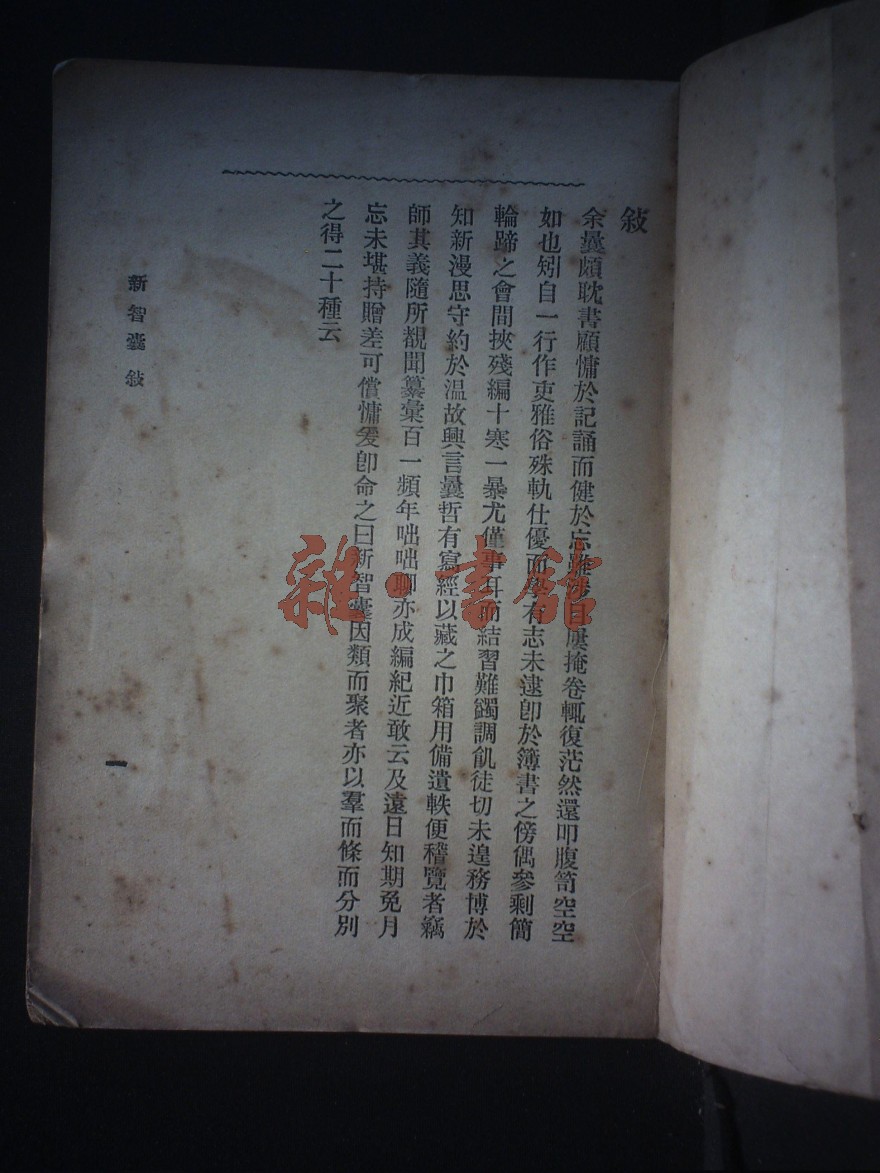 敍
余曩頗耽書顧慵於記誦而健於忘雖涉目屢掩卷輒復茫然還叩腹笥空空
如也矧自一行作吏雅俗殊軌仕優而學有志未逮卽於簿書之傍偶參剩簡
輪蹄之會間挾殘編十寒一暴尤僅事耳而結習難蠲調飢徒切未遑務博於
知新漫思守約於温故興言曩哲有寫經以藏之巾箱用備遺軼便稽覽者竊
師其義隨所覩聞纂彙百一頻年咄咄聊亦成編紀近敢云及遠日知期免月
忘未堪持贈差可償慵爰卽命之曰新智囊因類而聚者亦以羣而條而分別
之得二十種云
新智囊 敍
一
雜·書館